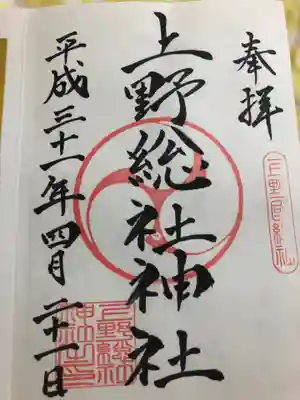 奉拝
上野総社神社
平成三十一年四月二十一日
上野國総社
上野総社
神社之印